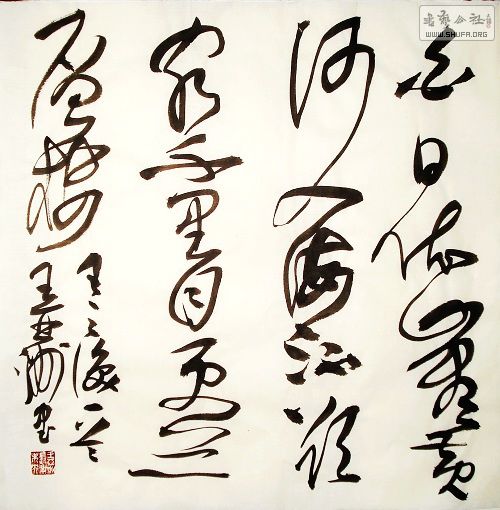 书艺公社
WWW.SHUFA.ORG
白日依山尽黄
河入海流欲
穷千里目更上一
层楼
王之涣
王
书